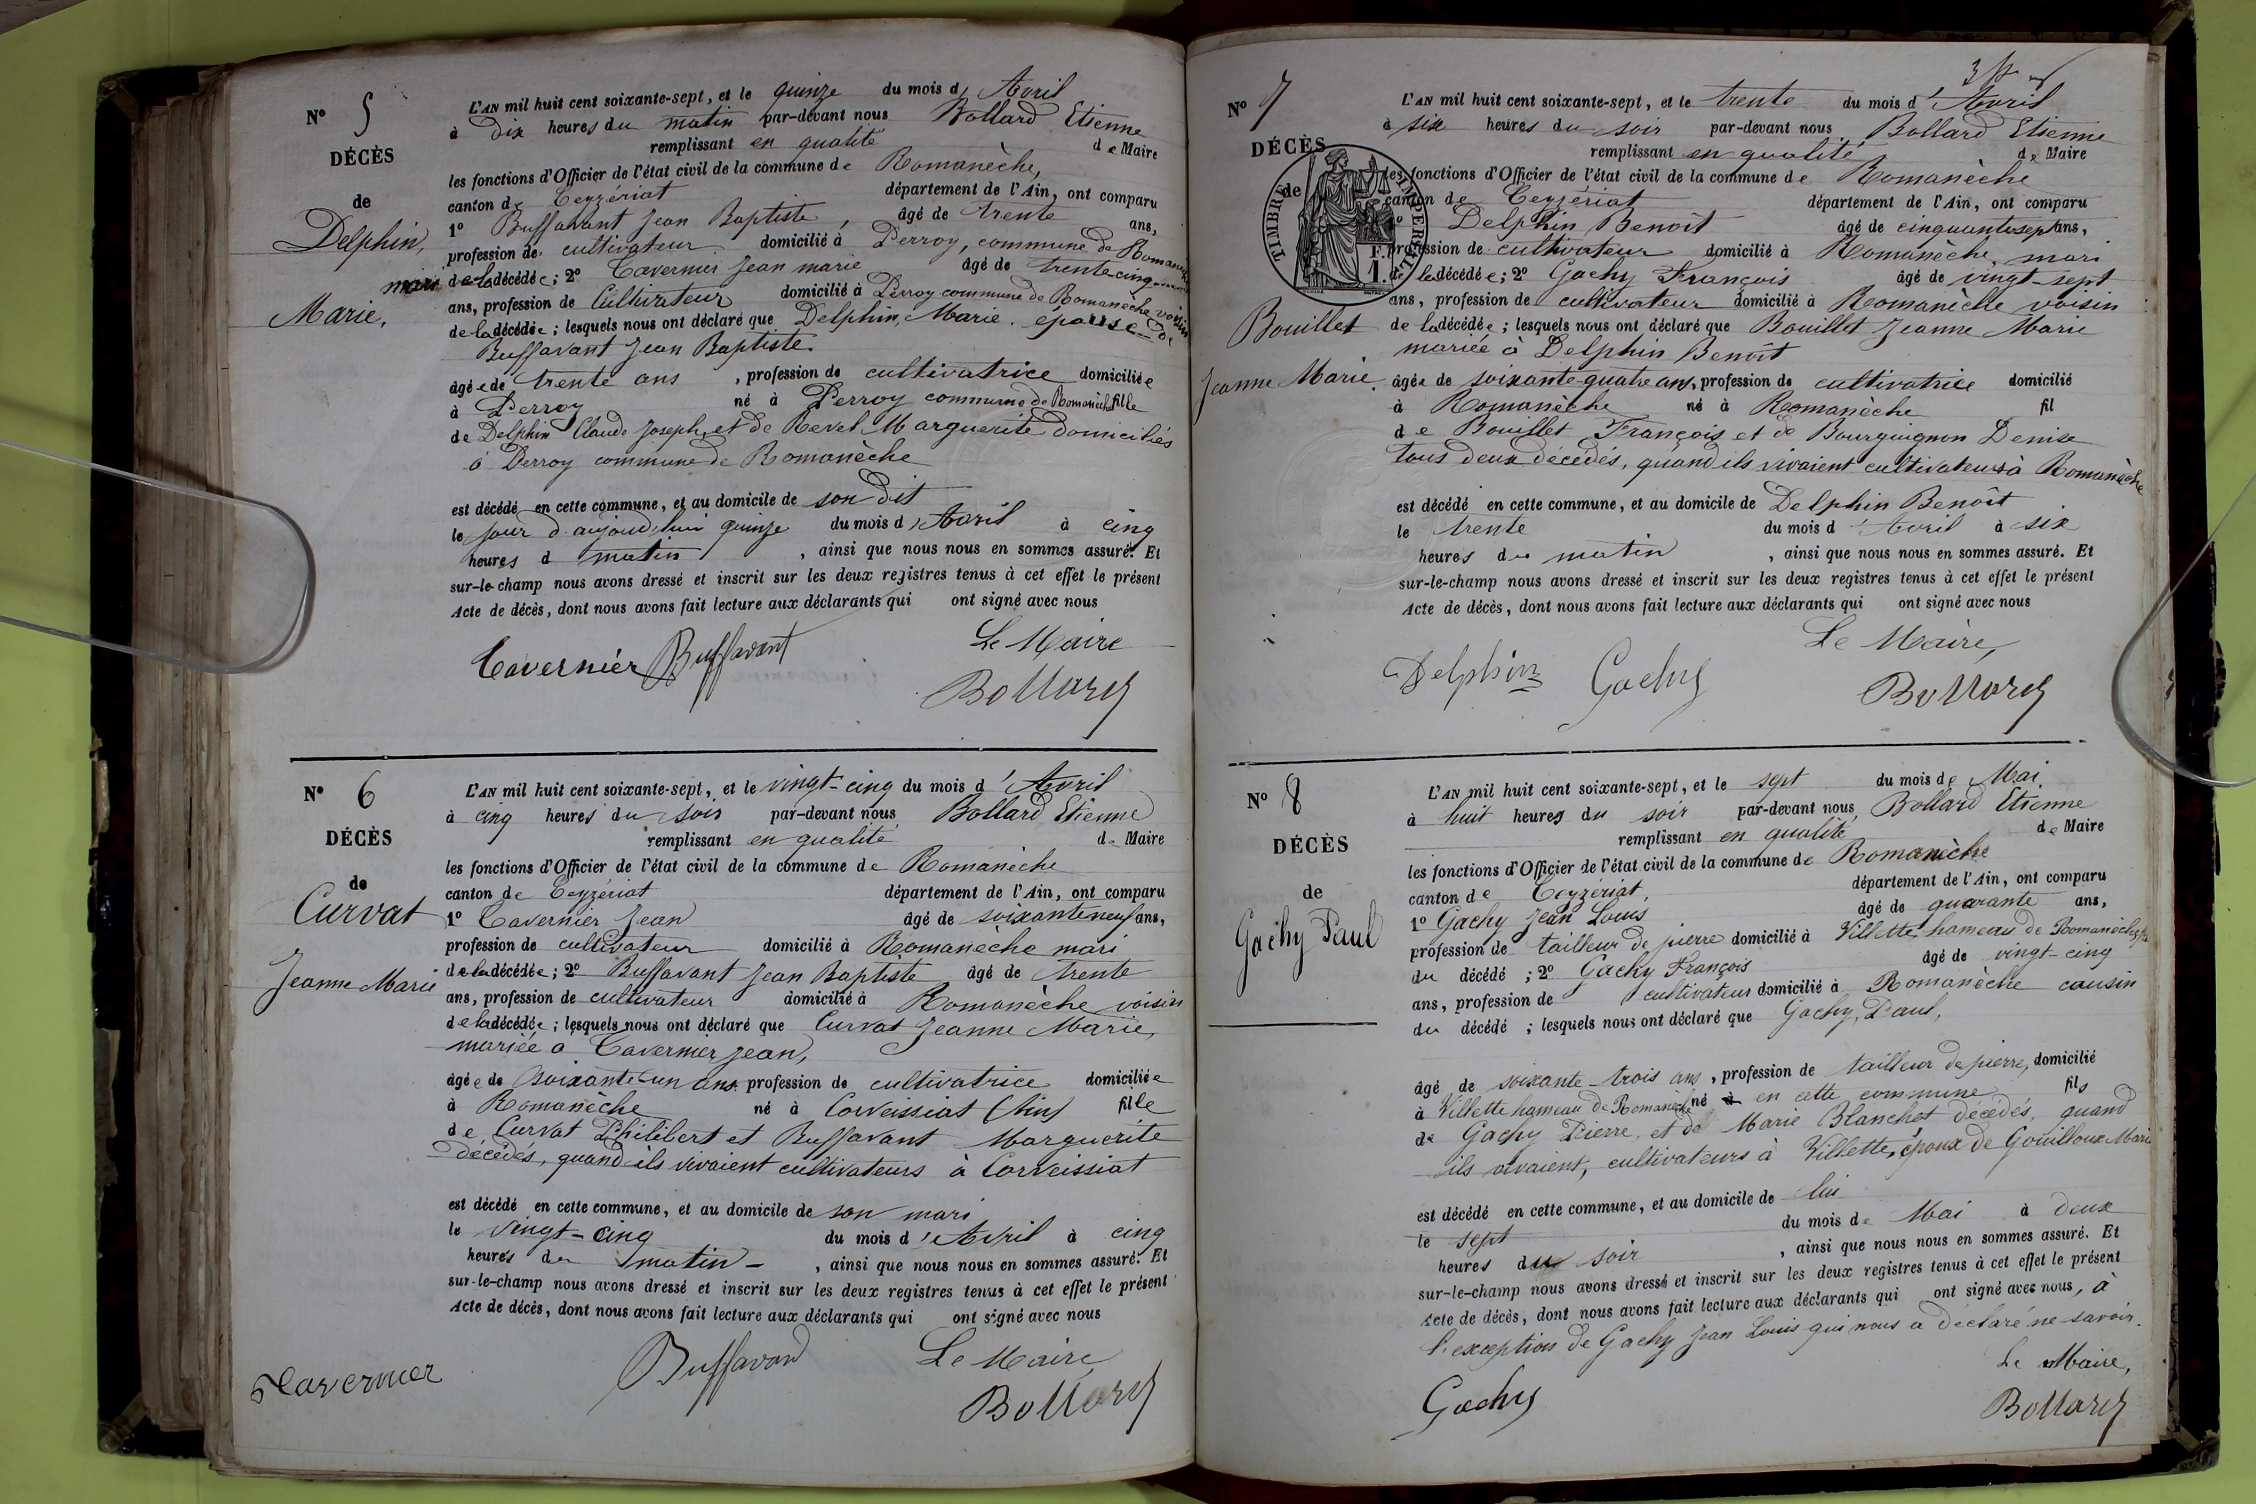 N° 5
DÉCÈS
de
Delphin,
Marie,
L'AN mil huit cent soixante-sept, et le quinze du mois d'Avril
à dix heures du matin par-devant nous Bollard Etienne
remplissant en qualité de Maire
les fonctions d'Officier de l'état civil de la commune de Romanèche,
canton de Ceyzériat département de l'Ain, ont comparu
1° Buffavant Jean Baptiste, âgé de trente ans,
profession de cultivateur domicilié à Perroy, commune de Romanèche
mari de la décédée; 2° Tavernier Jean marie âgé de trente cinq
ans, profession de Cultivateur domicilié à Perroy commune de Romanèche voisin
de la décédée; lesquels nous ont déclaré que Delphin, Marie. épouse de
Buffavant Jean Baptiste.
âgée de trente ans, profession de cultivatrice domiciliée
à Perroy né à Perroy commune de Romanèche fille
de Delphin Claude Joseph, et de Revel Marguerite domiciliés
à Perroy commune de Romanèche
est décédé en cette commune, et au domicile de son dit
le jour d'aujourd'hui quinze du mois d'Avril à cinq
heures d matin, ainsi que nous nous en sommes assuré. Et
sur-le-champ nous avons dressé et inscrit sur les deux registres tenus à cet effet le présent
Acte de décès, dont nous avons fait lecture aux déclarants qui ont signé avec nous
Le Maire
Tavernier Buffavant
Bollard
N° 6
DÉCÈS
de
Curvat
Jeanne Marie
L'AN mil huit cent soixante-sept, et le vingt-cinq du mois d'Avril
à cinq heures du soir par-devant nous Bollard Etienne
remplissant en qualité de Maire
les fonctions d'Officier de l'état civil de la commune de Romanèche
canton de Ceyzériat département de l'Ain, ont comparu
1° Tavernier Jean âgé de soixante neuf ans,
profession de cultivateur domicilié à Romanèche mari
de la décédée; 2° Buffavant Jean Baptiste âgé de trente
ans, profession de cultivateur domicilié à Romanèche voisin
de la décédée; lesquels nous ont déclaré que Curvat Jeanne Marie,
mariée à Tavernier Jean,
âgée de Soixante-un ans. profession de cultivatrice domiciliée
à Romanèche né à Corveissiat (Ain) fille
de Curvat Philibert et Buffavant Marguerite
décédés, quand ils vivaient cultivateurs à Corveissiat
est décédé en cette commune, et au domicile de son mari
le vingt-cinq du mois d'Avril à cinq
heures du matin, ainsi que nous nous en sommes assuré. Et
sur-le-champ nous avons dressé et inscrit sur les deux registres tenus à cet effet le présent
Acte de décès, dont nous avons fait lecture aux déclarants qui ont signé avec nous
Le Maire,
Tavernier Buffavand
Bollard
N° 7
DÉCÈS
de
Bouillet
Jeanne Marie.
TIMBRE IMPERIAL
1 F.
L'AN mil huit cent soixante-sept, et le trente du mois d'Avril
à six heures du soir par-devant nous Bollard Etienne
remplissant en qualité de Maire
les fonctions d'Officier de l'état civil de la commune de Romanèche
canton de Ceyzériat département de l'Ain, ont comparu
1° Delphin Benoît âgé de cinquante sept ans,
profession de cultivateur domicilié à Romanèche, mari
de la décédée; 2° Gachy François âgé de vingt-sept
ans, profession de cultivateur domicilié à Romanèche voisin
de la décédée; lesquels nous ont déclaré que Bouillet Jeanne Marie
mariée à Delphin Benoît
âgée de soixante-quatre ans, profession de cultivatrice domicilié
à Romanèche né à Romanèche fil
de Bouillet François et de Bourguignon Denise
tous deux décédés, quand ils vivaient cultivateurs à Romanèche
est décédé en cette commune, et au domicile de Delphin Benoît
le trente du mois d'Avril à six
heures du matin, ainsi que nous nous en sommes assuré. Et
sur-le-champ nous avons dressé et inscrit sur les deux registres tenus à cet effet le présent
Acte de décès, dont nous avons fait lecture aux déclarants qui ont signé avec nous
Le Maire,
Delphin Gachy
Bollard
N° 8
DÉCÈS
de
Gachy Paul
L'AN mil huit cent soixante-sept, et le sept du mois de Mai
à huit heures du soir par-devant nous, Bollard Etienne
remplissant en qualité de Maire
les fonctions d'Officier de l'état civil de la commune de Romanèche
canton de Ceyzériat, département de l'Ain, ont comparu
1° Gachy Jean Louis âgé de quarante ans,
profession de tailleur de pierre domicilié à Villette, hameau de Romanèche,
du décédé; 2° Gachy François âgé de vingt-cinq
ans, profession de cultivateur domicilié à Romanèche cousin
du décédé; lesquels nous ont déclaré que Gachy, Paul,
âgé de soixante-trois ans, profession de tailleur de pierre, domicilié
à Villette hameau de Romanèche né en cette commune fils
de Gachy Pierre, et de Marie Blanchet décédés, quand
ils vivaient, cultivateurs à Villette, époux de Gouilloux Marie
est décédé en cette commune, et au domicile de lui
le sept du mois de Mai à deux
heures du soir, ainsi que nous nous en sommes assuré. Et
sur-le-champ nous avons dressé et inscrit sur les deux registres tenus à cet effet le présent
Acte de décès, dont nous avons fait lecture aux déclarants qui ont signé avec nous, à
l'exception de Gachy Jean Louis qui nous a déclaré ne savoir.
Le Maire,
Gachy
Bollard